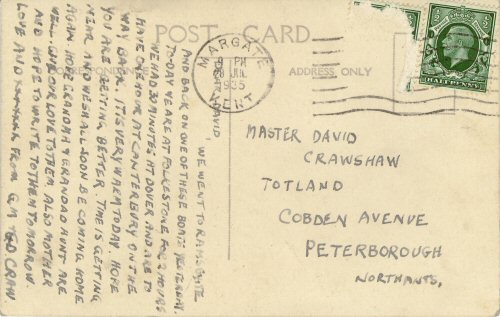 POST CARD
ADDRESS ONLY
MARGATE
8 PM
JUL
1935
KENT
HALFPENNY
DAVID,
WE WENT TO RAMSGATE
AND BACK ON ONE OF THESE BOATS YESTERDAY.
TODAY WE ARE AT FOLKESTONE FOR 2 HOURS
WE HAD 30 MINUTES AT DOVER AND ARE TO
HAVE ONE HOUR AT CANTERBURY ON THE
WAY BACK. IT'S VERY WARM TODAY. HOPE
YOU ARE GETTING BETTER. TIME IS GETTING
NEAR AND WE SHALL SOON BE COMING HOME
AGAIN. HOPE GRANDMA & GRANDAD HUNT ARE
WELL. GIVE OUR LOVE TO THEM. ALSO MOTHER
AND HOPE TO WRITE TO THEM TOMORROW.
LOVE AND FROM G.M. & GD CRAW
MASTER DAVID
CRAWSHAW
TOTLAND
COBDEN AVENUE
PETERBOROUGH
NORTHANTS.